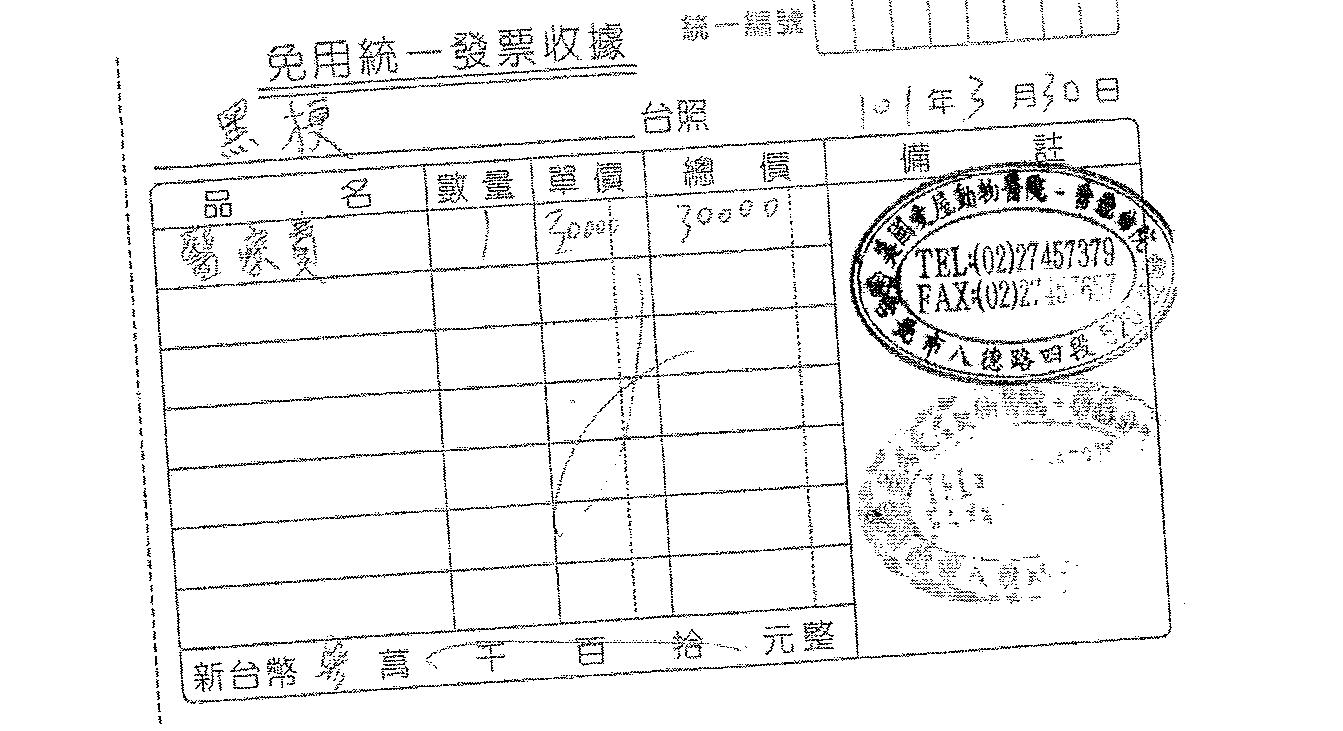 統一編號
免用統一發票收據
黑梗 台照 101年3月30日
品名 數量 單價 總價 備註
醫療費 1 30000 30000
動物醫院
TEL:(02)27457379
FAX:(02)27457657
市八德路四段
新台幣參萬 千 百 拾 元整